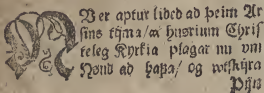 NV er aptur lided ad þeim Ar
sins tijma/ ꜳ huørium Chris
teleg Kyrkia plagar nu vm
Hønd ad hafa/ og vtskijra
Pijn